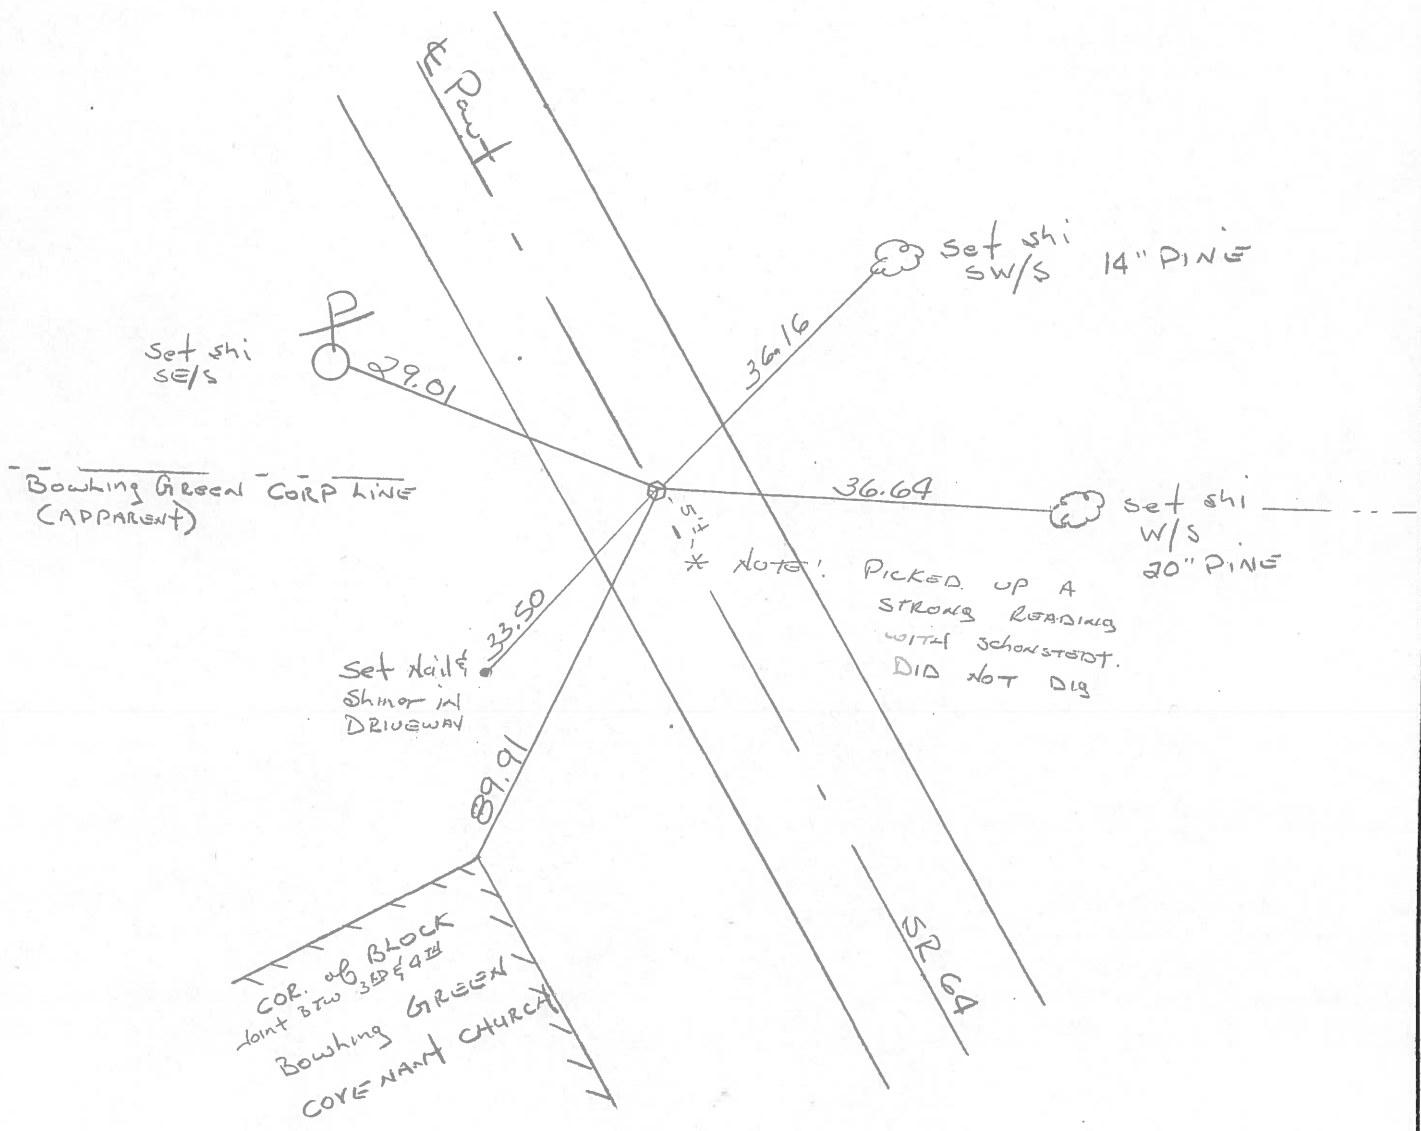 ℄ Pavt
Set shi
SW/S
14" PINE
36.16
Set shi
SE/S
29.01
Bowling GREEN CORP LINE
(APPARENT)
36.64
Set shi
W/S
20" PINE
* NOTE: PICKED UP A
STRONG READING
WITH SCHONSTEDT.
DID NOT DIG
33.50
Set Nail &
Shiner in
DRIVEWAY
89.91
SR 64
COR. of BLOCK
Joint BTW 3RD & 4TH
Bowling GREEN
COVENANT CHURCH